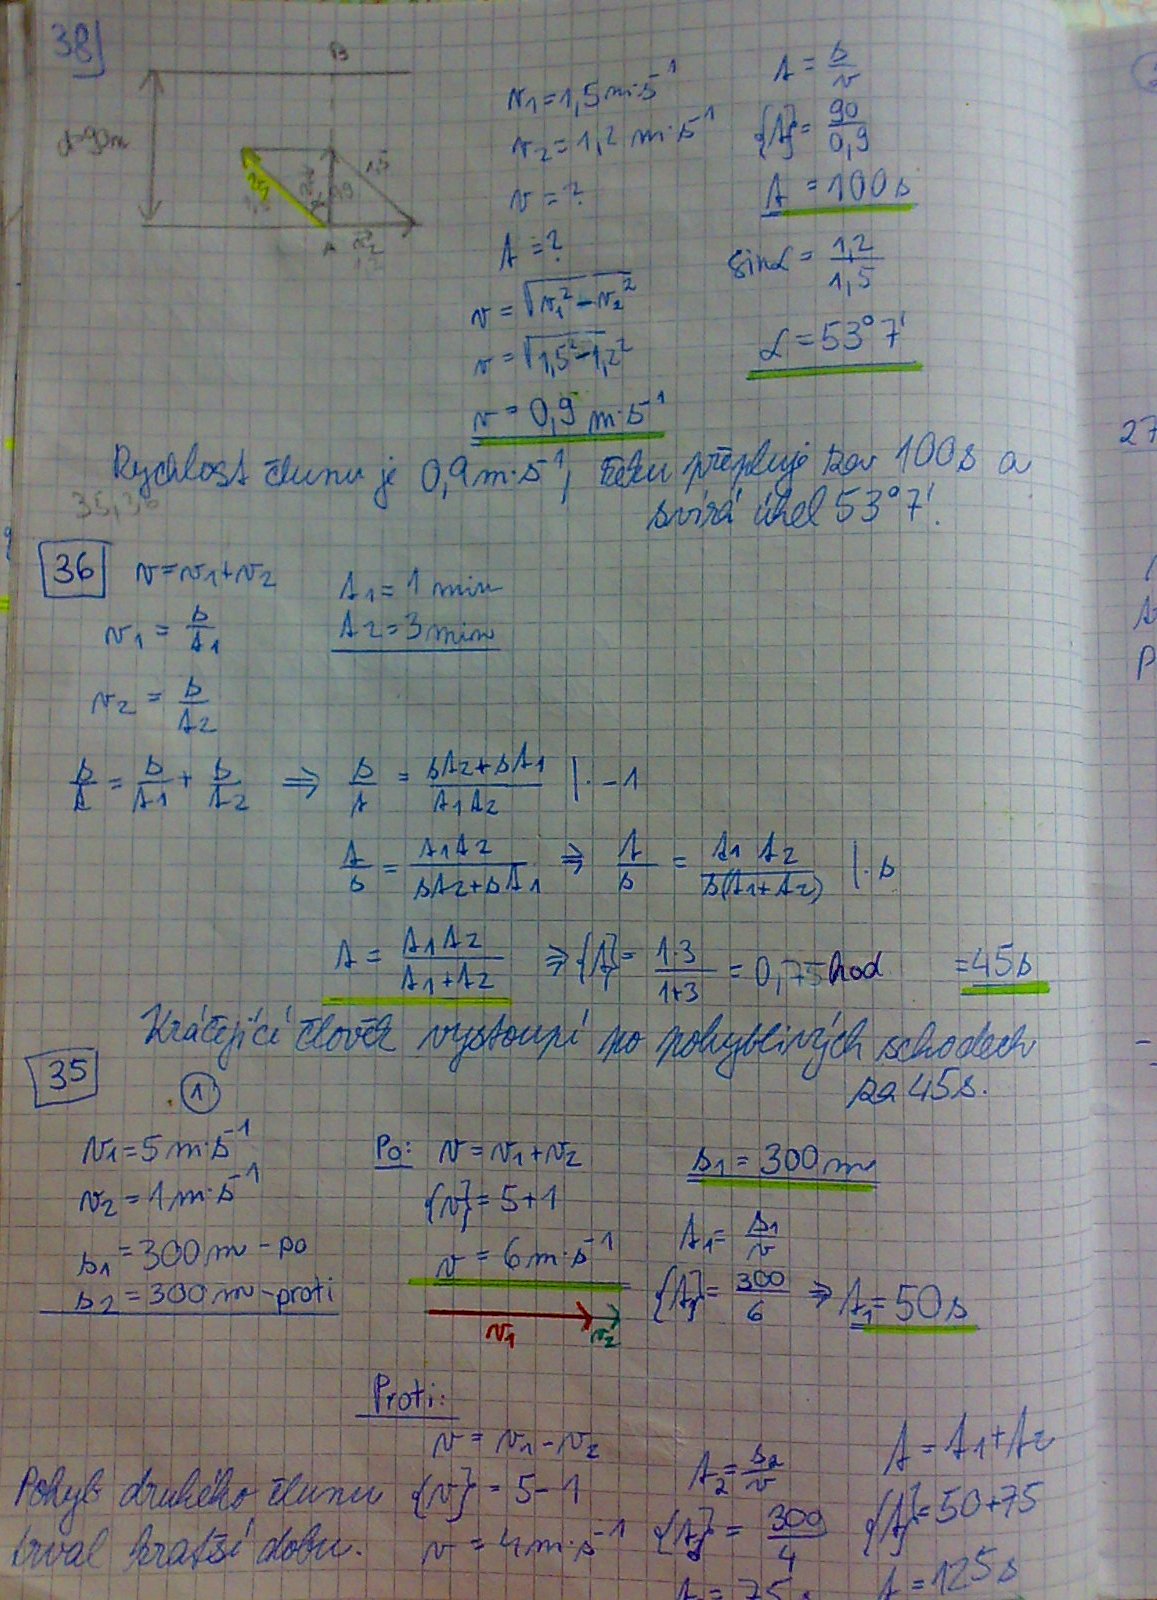 38)
B
d=90m
v1
1,5
0,9
1,5
A
v2
1,2
v1=1,5 m·s^-1
v2=1,2 m·s^-1
v=?
t=?
v=√v1²-v2²
v=√1,5²-1,2²
v=0,9 m·s^-1
t = s/v
{t}= 90/0,9
t = 100s
sinα = 1,2/1,5
α=53°7'
Rychlost člunu je 0,9 m·s^-1, řeku přepluje za 100s a
svírá úhel 53°7'.
35,36
36
v=v1+v2
t1=1 min
t2=3 min
v1 = s/t1
v2 = s/t2
s/t = s/t1 + s/t2 ⇒ s/t = st2+st1/t1t2 |·-1
t/s = t1t2/st2+st1 ⇒ t/s = t1 t2/s(t1+t2) |·s
t = t1t2/t1+t2 ⇒ {t}= 1·3/1+3 = 0,75hod =45s
Kráčející člověk vystoupí po pohyblivých schodech
za 45s.
35
1
v1=5 m·s^-1
v2=1 m·s^-1
s1=300m-po
s2=300m-proti
Po: v=v1+v2
{v}=5+1
v=6m·s^-1
v1 v2
s1=300m
t1= s1/v
{t1}= 300/6 ⇒ t1=50s
Proti:
v=v1-v2
{v}=5-1
v=4m·s^-1
t2= s2/v
{t2}= 300/4
t = 75s
t=t1+t2
{t}=50+75
t=125s
Pohyb druhého člunu
trval kratší dobu.
27